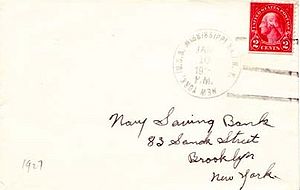 U.S.S. MISSISSIPPI
NEW YORK, N.Y.
JAN
10
P.M.
UNITED STATES POSTAGE
2 CENTS 2
Navy Saving Bank
83 Sands Street
Brooklyn
New York
1927